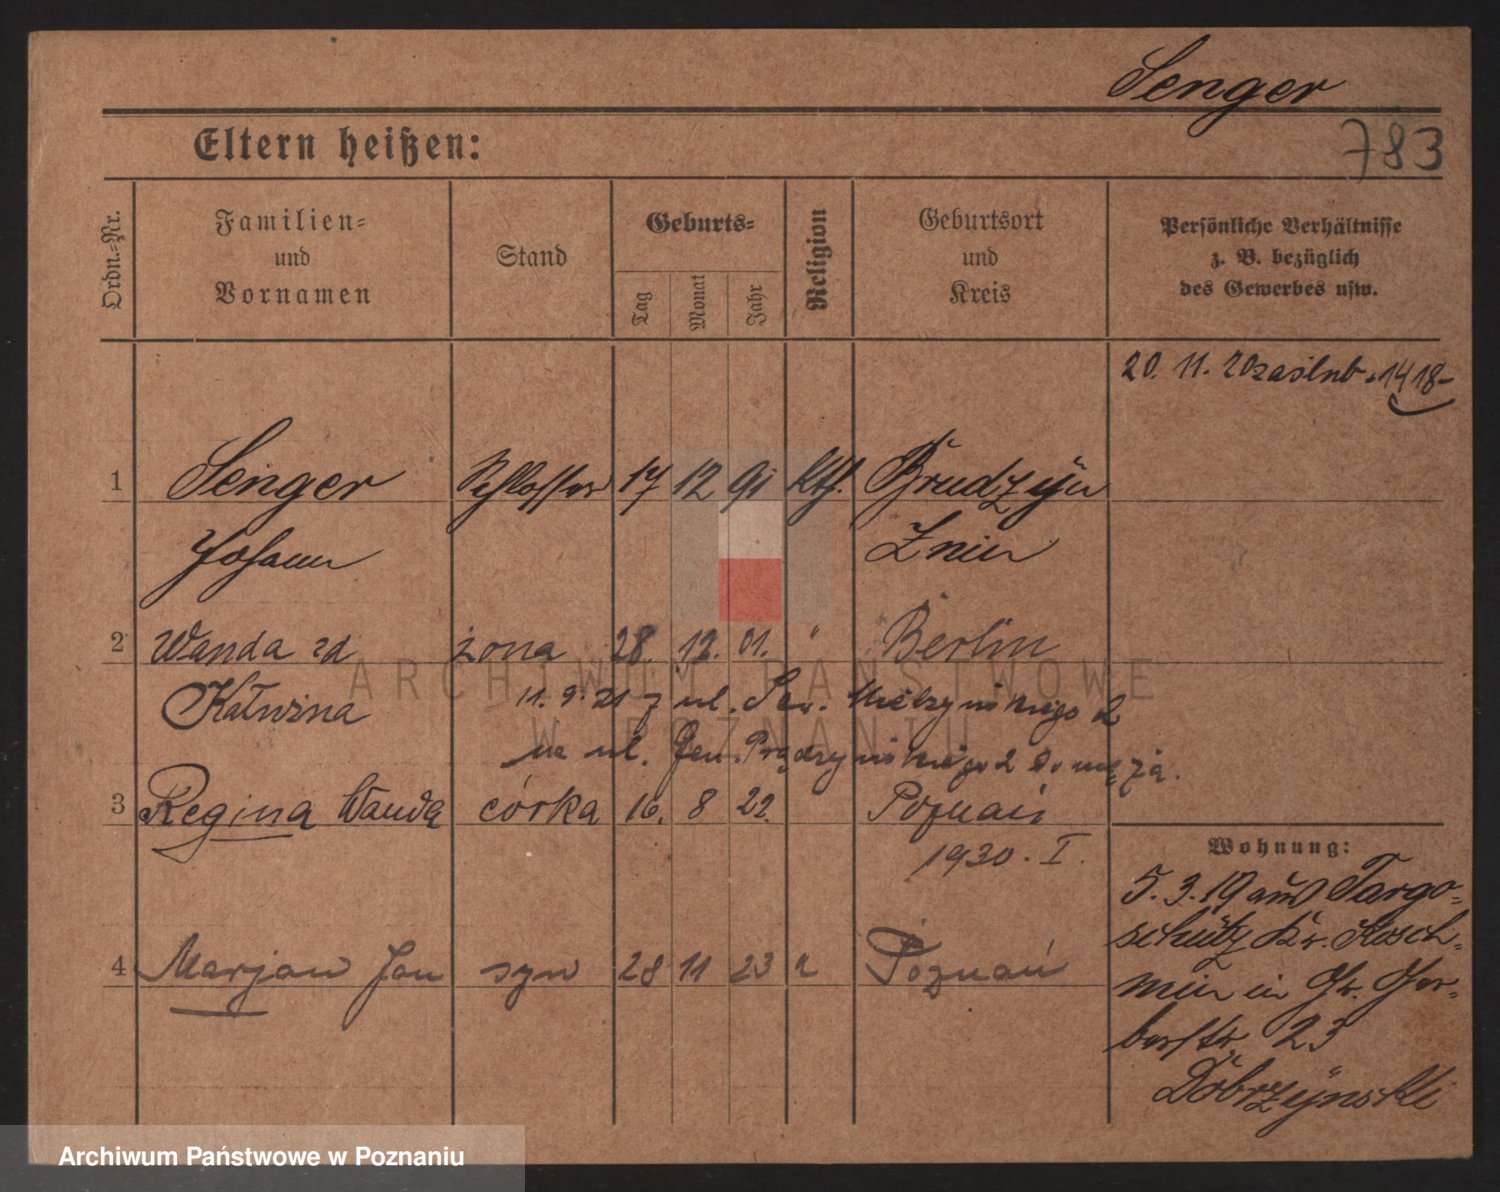 Senger
783
Eltern heißen:
Ordn.-Nr.
Familien- und Vornamen
Stand
Geburts-
Tag
Monat
Jahr
Religion
Geburtsort und Kreis
Persönliche Verhältnisse z. B. bezüglich des Gewerbes usw.
20. 11. 20 zaślub. 1418
1 Senger Schlosser 17 12 91 kth. Brudzyn
Johann Znin
2 Wanda zd żona 28. 12. 01. " Berlin
Kałużna 11. 9. 21 z ul. Sew. Mielżyńskiego 2
na ul. Gen. Prądzyńskiego 2 do męża.
3 Regina Wanda córka 16. 8 22. Poznań
1930. I.
4 Marjan Jan syn 28 11 23 " Poznań
Wohnung:
5. 3. 19 aus Targo-
schütz Kr. Kosch-
min in Gr. Ger-
berstr. 23
Dobrzynski
ARCHIWUM PAŃSTWOWE
W POZNANIU
Archiwum Państwowe w Poznaniu